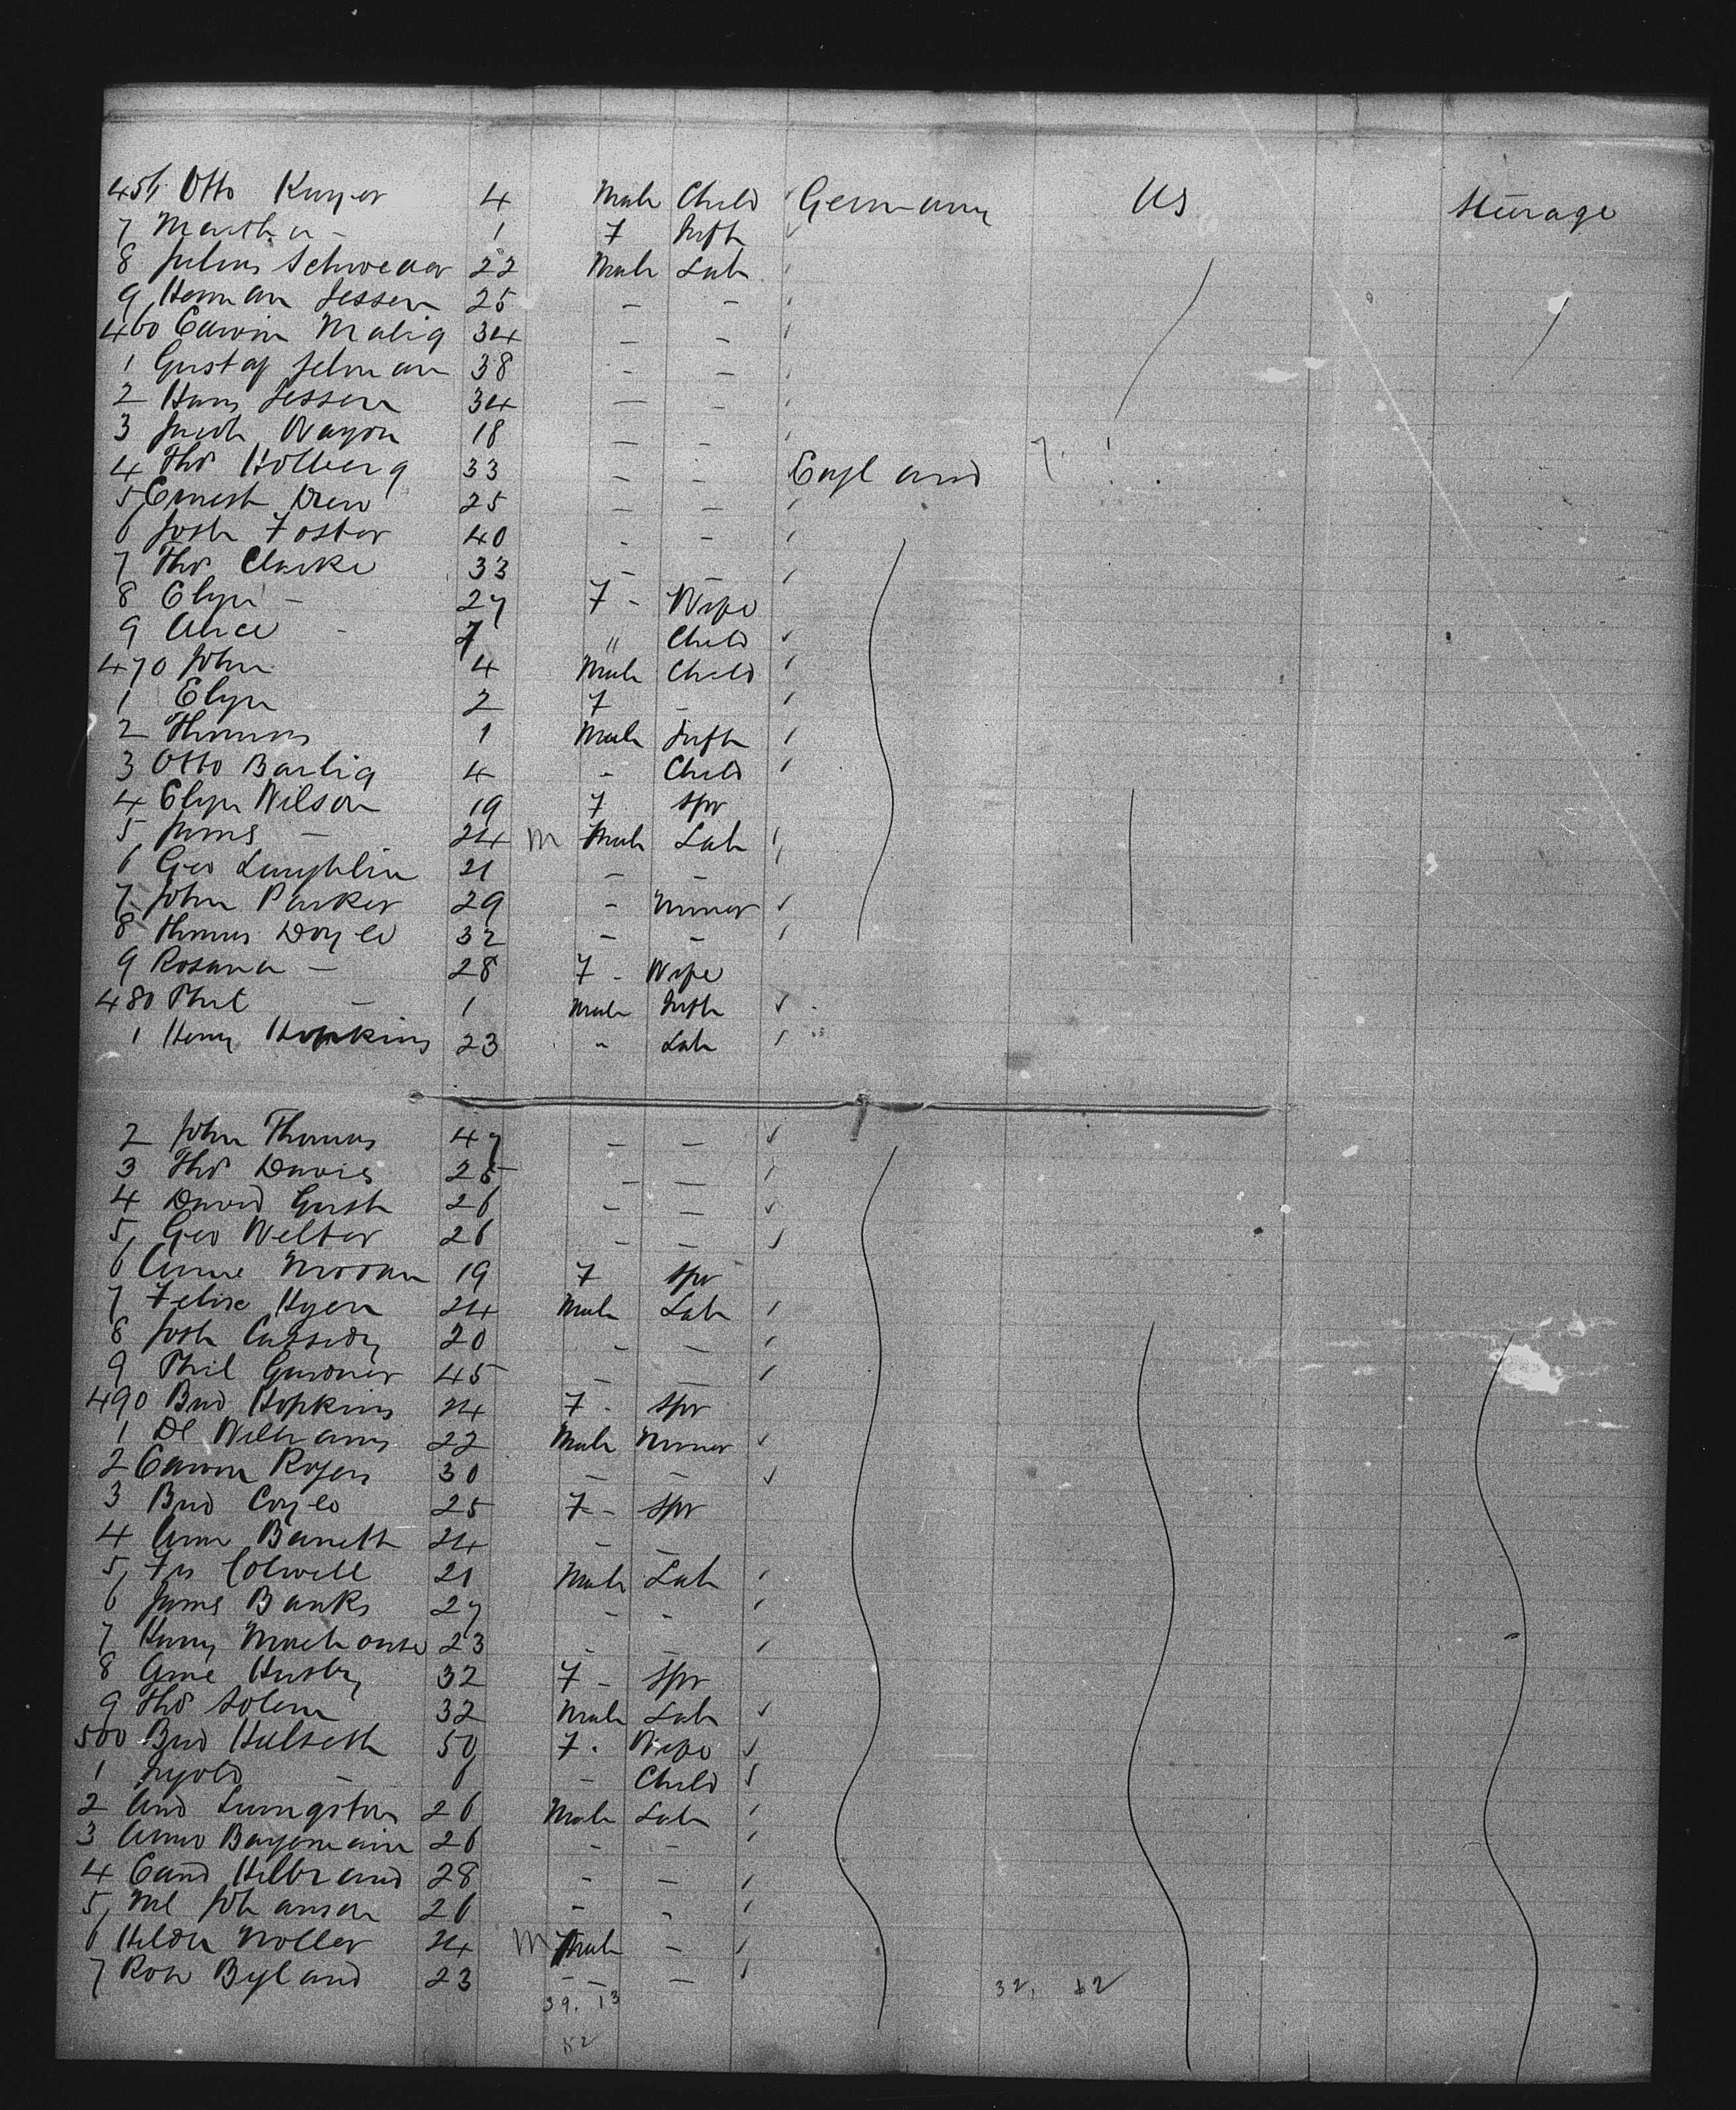 456 Otto Kunjer 4 Male Child Germany US Steerage
7 Martha - 1 F Inft
8 Julius 22 Male Lab
9 Herman Jessen 25 - -
460 Edwin Malig 34 - -
1 Gustaf Selman 38 - -
2 Hans Jessen 34 - -
3 Jacob Wayon 18 - -
4 Thos Holberg 33 - - England
5 Ernest Drew 25 - -
6 Josh Foster 40 - -
7 Thos Clarke 33 - -
8 Eliza - 27 F - Wife
9 Alice - 7 " Child
470 John 4 Male Child
1 Eliza 2 F -
2 Thomas 1 Male Inft
3 Otto Barlig 4 - Child
4 Eliza Wilson 19 F Spr
5 James - 24 M Male Lab
6 Geo Laughlin 21 - -
7 John Parker 29 - Miner
8 Thomas Doyle 32 - -
9 Rosanna - 28 F - Wife
480 Phil - 1 Male Inft
1 Henry Hopkins 23 " Lab
2 John Thomas 47 - -
3 Thos Davies 25 - -
4 David Gush 26 - -
5 Geo Welter 26 - -
6 Annie Moran 19 F Spr
7 Felix Hyen 24 Male Lab
8 Josh Cassidy 20 - -
9 Phil Gardner 45 - -
490 Brid Hopkins 24 F - Spr
1 Dl Williams 22 Male Miner
2 Edwin Rogers 30 - -
3 Brid Coyle 25 F - Spr
4 Ann Barrett 24 - -
5 Fs Colwell 21 Male Lab
6 James Banks 27 - -
7 Harry Morehouse 23 - -
8 Ane Husby 32 F - Spr
9 Thos Solem 32 Male Lab
500 Brid Hulseth 50 F - Wife
1 - 6 - Child
2 And Livingston 26 Male Lab
3 26 - -
4 Hilbrand 28 - -
5 Ml Johanson 26 - -
6 Hilda Moller 24 M Male -
7 Byland 23 - - -
39. 13 32,
52